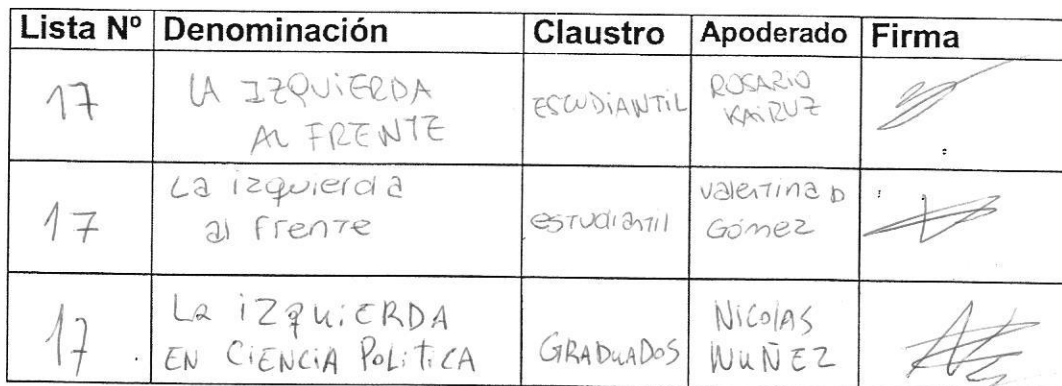 Lista Nº Denominación Claustro Apoderado Firma
17 LA IZQUIERDA AL FRENTE ESCUDIANTIL ROSARIO KAIRUZ
17 La izquierda al frente estudiantil Valentina D Gómez
17 La iZquiERDA EN CiENCiA POLiTiCA GRADUADOS NICOLAS NUÑEZ